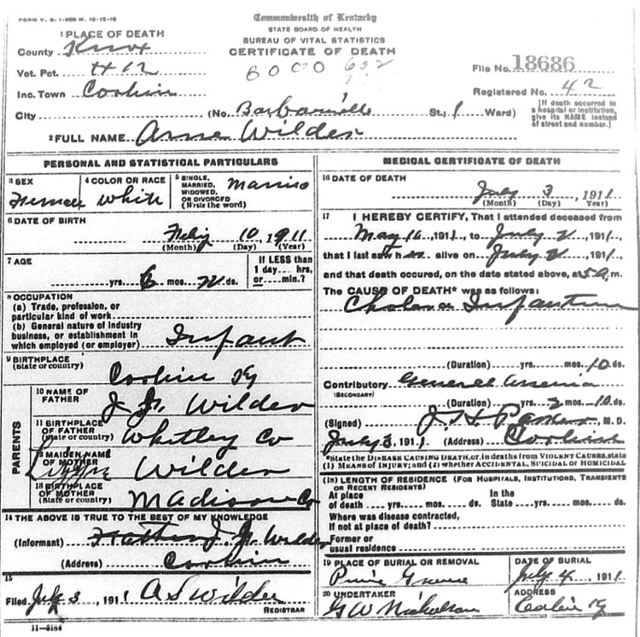 FORM V. S. 1-
Commonwealth of Kentucky
STATE BOARD OF HEALTH
BUREAU OF VITAL STATISTICS
CERTIFICATE OF DEATH
1 PLACE OF DEATH
County Knox
Vot. Pct.
Inc. Town Corbin
City
(No. Barbourville St., Ward)
File No. 18686
Registered No. 42
[If death occurred in a hospital or institution, give its NAME instead of street and number.]
2 FULL NAME Anna Wilder
PERSONAL AND STATISTICAL PARTICULARS
3 SEX
Female
4 COLOR OR RACE
White
5 SINGLE, MARRIED, WIDOWED, OR DIVORCED
(Write the word)
6 DATE OF BIRTH
10 1911
(Month) (Day) (Year)
7 AGE
yrs. mos. ds.
If LESS than 1 day.... hrs. or.... min.?
8 OCCUPATION
(a) Trade, profession, or particular kind of work
(b) General nature of industry business, or establishment in which employed (or employer) Infant
9 BIRTHPLACE
(State or country) Corbin Ky
PARENTS
10 NAME OF FATHER Wilder
11 BIRTHPLACE OF FATHER
(State or country) Whitley Co
12 MAIDEN NAME OF MOTHER Wilder
13 BIRTHPLACE OF MOTHER
(State or country) Madison Co
14 THE ABOVE IS TRUE TO THE BEST OF MY KNOWLEDGE
(Informant) Father Wilder
(Address) Corbin
15
Filed July 3, 1911 A S Wilder
REGISTRAR
MEDICAL CERTIFICATE OF DEATH
16 DATE OF DEATH
July 3 1911
(Month) (Day) (Year)
17 I HEREBY CERTIFY, That I attended deceased from
May 16, 1911, to July 2, 1911,
that I last saw h alive on July 2, 1911,
and that death occured, on the date stated above, at 5 a.m.
The CAUSE OF DEATH* was as follows:
Cholera Infantum
(Duration) yrs. mos. 10 ds.
Contributory General
(SECONDARY)
(Duration) yrs. 2 mos. 10 ds.
(Signed) M. D.
July 3, 1911 (Address) Corbin
*State the DISEASE CAUSING DEATH, or, in deaths from VIOLENT CAUSES, state
(1) MEANS OF INJURY; and (2) whether ACCIDENTAL, SUICIDAL or HOMICIDAL
18 LENGTH OF RESIDENCE (FOR HOSPITALS, INSTITUTIONS, TRANSIENTS OR RECENT RESIDENTS)
At place of death yrs. mos. ds. In the State yrs. mos. ds.
Where was disease contracted,
If not at place of death?
Former or
usual residence
19 PLACE OF BURIAL OR REMOVAL
DATE OF BURIAL
July 4, 1911
20 UNDERTAKER
G W Nicholson
ADDRESS
Corbin Ky